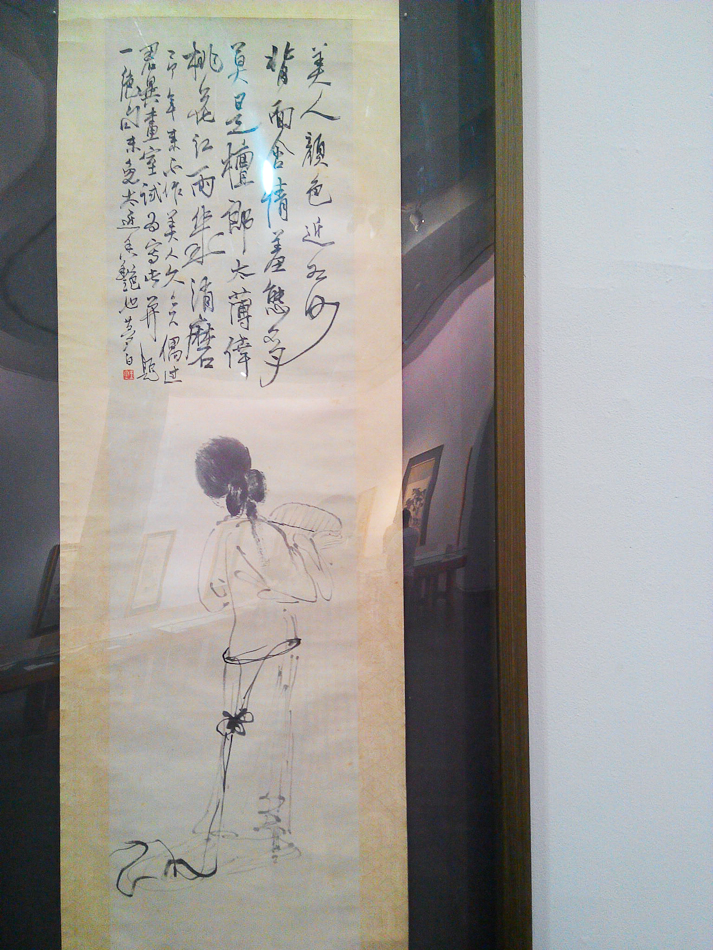 美人顏色近如何
背面含情羞態多
莫是檀郎太薄倖
桃花江雨班清磨
年來不作美人久矣偶過
君異畫室試為寫此并題
一絕句未免太近香艷也